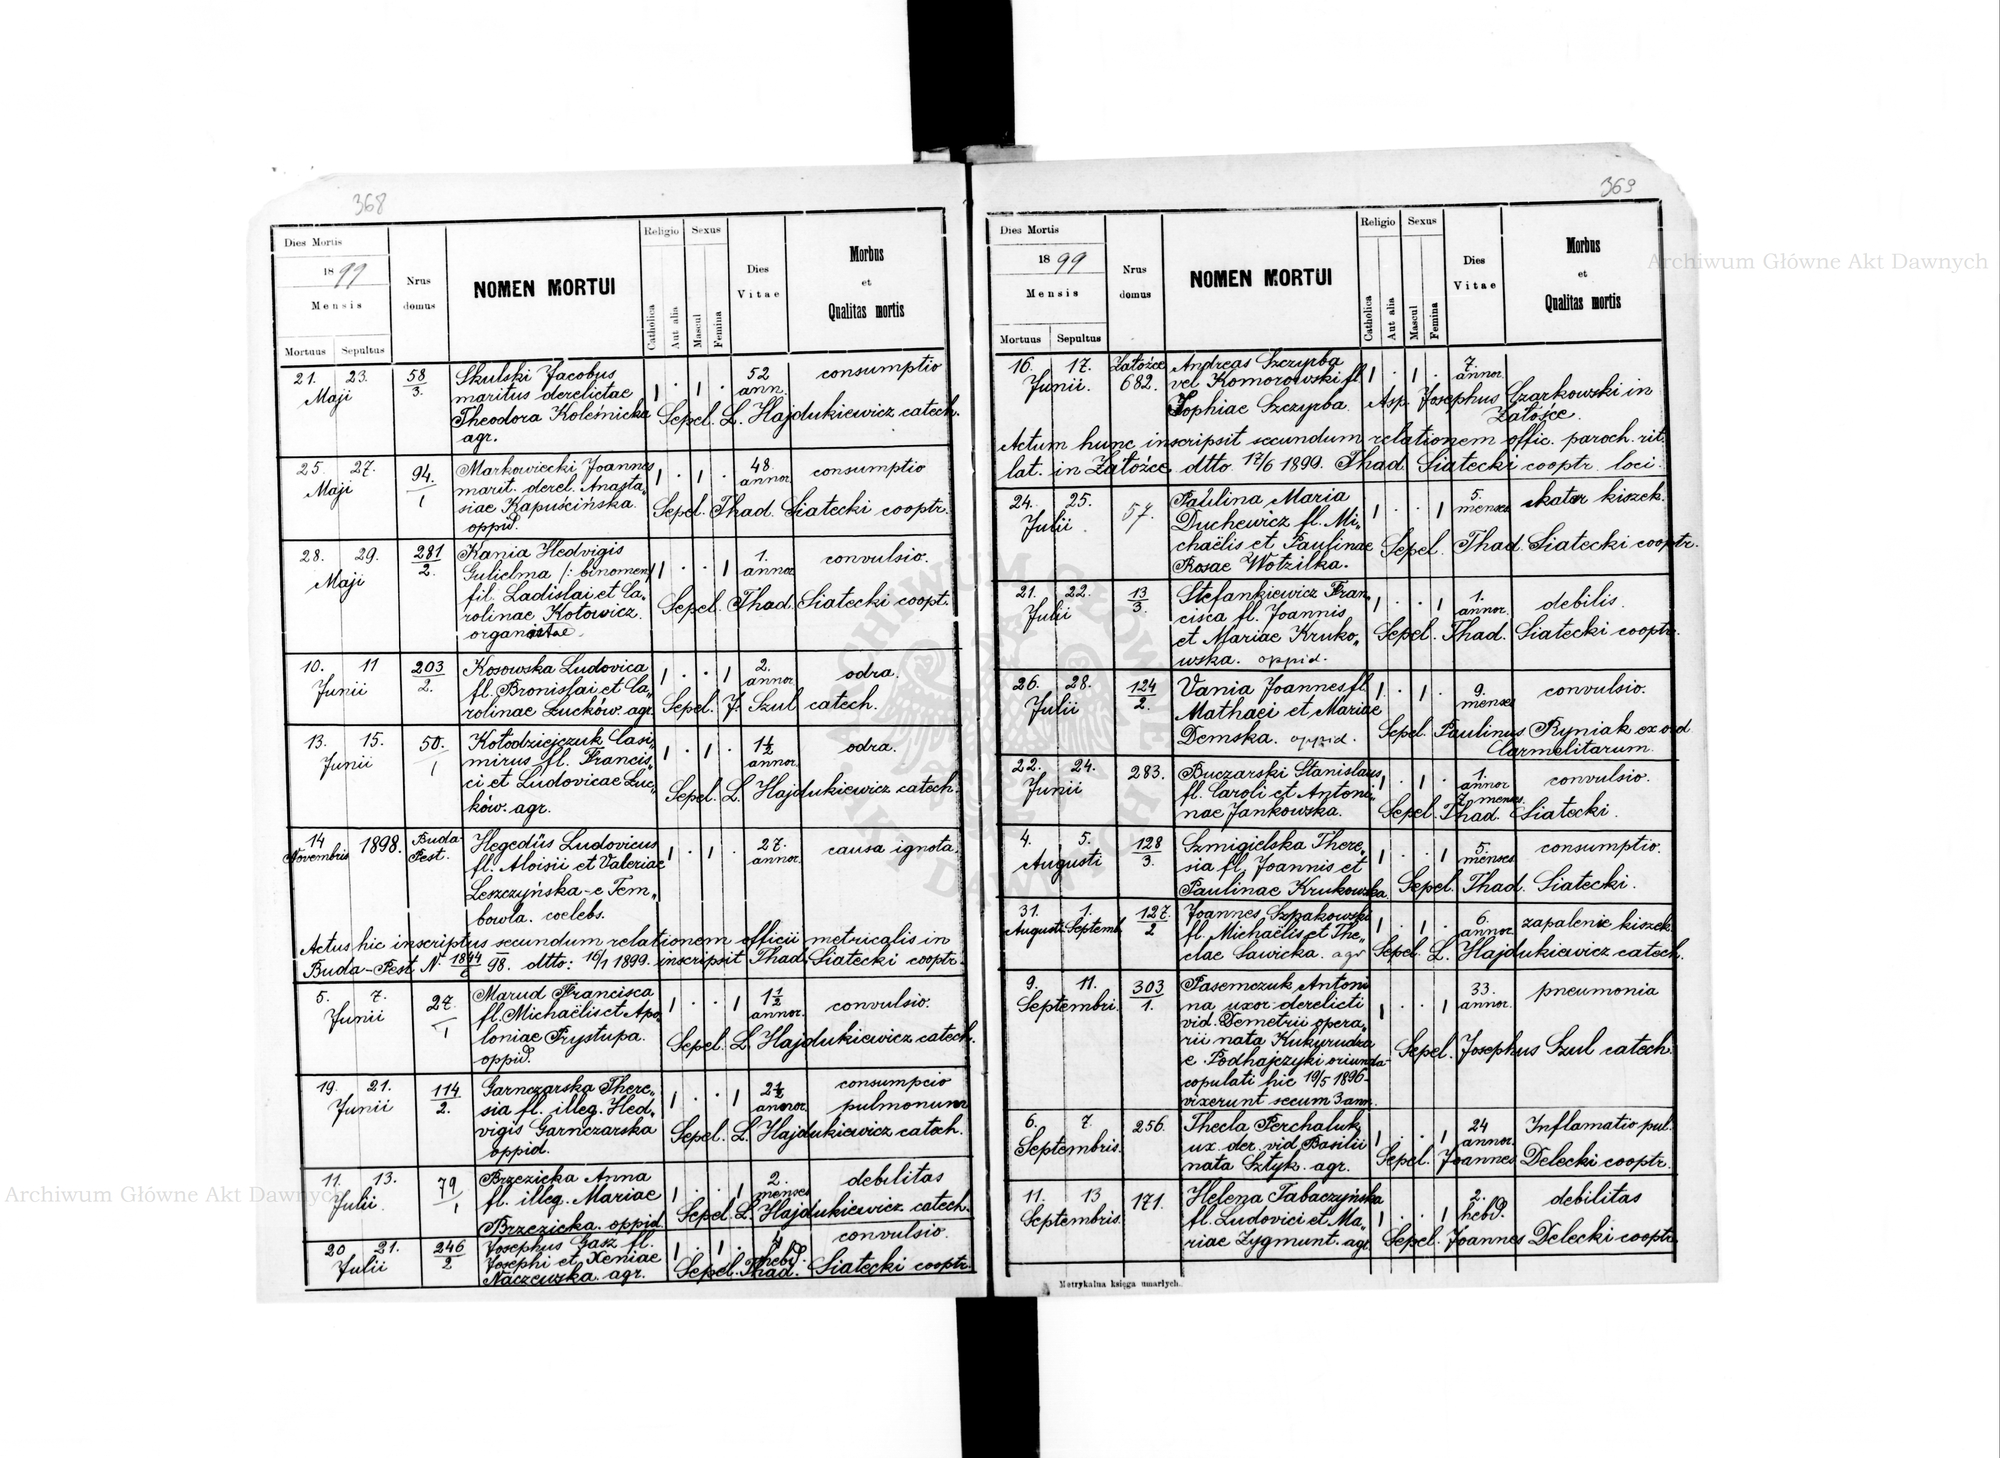 368
Dies Mortis
1899
Mensis
Mortuus Sepultus
Nrus domus
NOMEN MORTUI
Religio
Catholica
Aut alia
Sexus
Mascul
Femina
Dies Vitae
Morbus et Qualitas mortis
21. 23. Maji
58/3.
Skulski Jacobus
maritus derelictae
Theodora Koleśnicka
agr.
52 ann.
consumptio
Sepel. L. Hajdukiewicz catech.
25. 27. Maji
94./1
Markowiecki Joannes
marit. derel. Anasta„
siae Kapuścińska
oppid.
48. annor.
consumptio
Sepel. Thad. Siatecki cooptr.
28. 29. Maji
281/2.
Kania Hedvigis
Gulielma /: binomen/
fil. Ladislai et Ca„
rolinae Kotowicz.
organistae.
1. annor.
convulsio.
Sepel. Thad. Siatecki coopt.
10. 11 Junii
203/2.
Kosowska Ludovica
fl. Bronislai et Ca„
rolinae Łucków. agr.
2. annor
odra.
Sepel. J. Szul catech.
13. 15. Junii
50./1
Kołodziejczuk Casi„
mirus fl. Francis„
ci et Ludovicae Łuc„
ków. agr.
1 1/2 annor.
odra.
Sepel. L. Hajdukiewicz catech.
14 Novembris 1898.
Buda-Pest.
Hegedüs Ludovicus
fl. Aloisii et Valeriae
Leszczyńska - e Tem„
bowla. coelebs.
27. annor.
causa ignota.
Actus hic inscriptus secundum relationem officii metricalis in
Buda-Pest N. 98. dtto: 16/1 1899. inscripsit Thad. Siatecki cooptr.
5. 7. Junii
27./1
Marud Francisca
fl. Michaëlis et Apo„
loniae Prystupa.
oppid.
1 1/2 annor.
convulsio.
Sepel. L. Hajdukiewicz catech.
19. 21. Junii
114/2.
Garnczarska There„
sia fl. illeg. Hed„
vigis Garnczarska
oppid.
2 1/2 annor.
consumpcio
pulmonum
Sepel. L. Hajdukiewicz catech.
11. 13. Julii
79/1
Brzezicka Anna
fl. illeg. Mariae
Brzezicka. oppid.
2. menses
debilitas
Sepel. L. Hajdukiewicz catech.
20 21. Julii
246/2
Josephus Gasz fl.
Josephi et Xeniae
Naczewska. agr.
hebd.
convulsio.
Sepel. Thad. Siatecki cooptr.
369
Dies Mortis
1899
Mensis
Mortuus Sepultus
Nrus domus
NOMEN MORTUI
Religio
Catholica
Aut alia
Sexus
Mascul
Femina
Dies Vitae
Morbus et Qualitas mortis
16. 17. Junii.
Załoźce 682.
Andreas Szczyrba
vel Komorowski fl.
Sophiae Szczyrba.
7. annor.
Asp. Josephus Czarkowski in
Załoźce.
Actum hunc inscripsit secundum relationem offic. paroch. rit.
lat. in Załoźce dtto 17/6 1899. Thad. Siatecki cooptr. loci.
24. 25. Julii
57.
Paulina Maria
Duchewicz fl. Mi„
chaëlis et Paulinae
Rosae Wotzilka.
5. menses
katar kiszek.
Sepel. Thad. Siatecki cooptr.
21. 22. Julii
13/3.
Stefankiewicz Fran„
cisca fl. Joannis
et Mariae Kruko„
wska. oppid.
1. annor.
debilis.
Sepel. Thad. Siatecki cooptr.
26. 28. Julii
124/2.
Vania Joannes fl.
Mathaei et Mariae
Demska. oppid.
9. menses
convulsio.
Sepel. Paulinus Ryniak ex ord
Carmelitarum.
22. 24. Junii
283.
Buczarski Stanislaus
fl. Caroli et Antoni„
nae Jankowska.
1. annor 7 menses.
convulsio.
Sepel. Thad. Siatecki.
4. 5. Augusti
128/3.
Szmigielska There„
sia fl. Joannis et
Paulinae Krukowska.
5. menses
consumptio.
Sepel. Thad. Siatecki.
31. Augusti 1. Septemb.
127./2
Joannes Szpakowski
fl. Michaëlis et The„
clae Sawicka. agr
6. annor.
zapalenie kiszek
Sepel. L. Hajdukiewicz catech.
9. 11. Septembri.
303/1.
Pasemczuk Antoni
na uxor derelicti
vid. Demetrii opera„
rii nata Kukurudza
e Podhajczyki oriunda
copulati hic 19/5 1896-
vixerunt secum 3 ann.
33. annor.
pneumonia
Sepel. Josephus Szul catech.
6. 7. Septembris.
256.
Thecla Perchaluk
ux. der. vid. Basilii
nata Sztyk. agr.
24 annor.
Inflamatio pul.
Sepel. Joannes Delecki cooptr.
11. 13 Septembris.
171.
Helena Tabaczyńska
fl. Ludovici et Ma„
riae Zygmunt. agr.
2. hebd.
debilitas
Sepel. Joannes Delecki cooptr.
Metrykalna księga umarłych.
Archiwum Główne Akt Dawnych
Archiwum Główne Akt Dawnych
ARCHIWUM GŁÓWNE AKT DAWNYCH